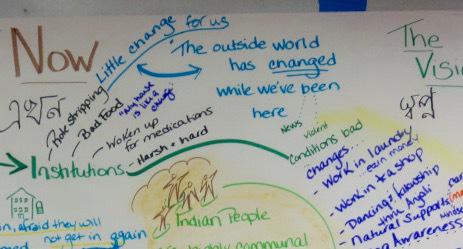 Now
এখন
Little change for us
"The outside world
has changed
while we've been
here
The
Visi
Role stripping
Bad Food
"My house
is like a
Woken up
for medications
Harsh + hard
Institutions
News
Violent
Conditions bad
changes...
- Work in laundry
earn money
- Work in tea shop
- Dancing
thru Anjali
- Natural supports
Awareness
Indian People
communal
in, afraid they will
not get in again